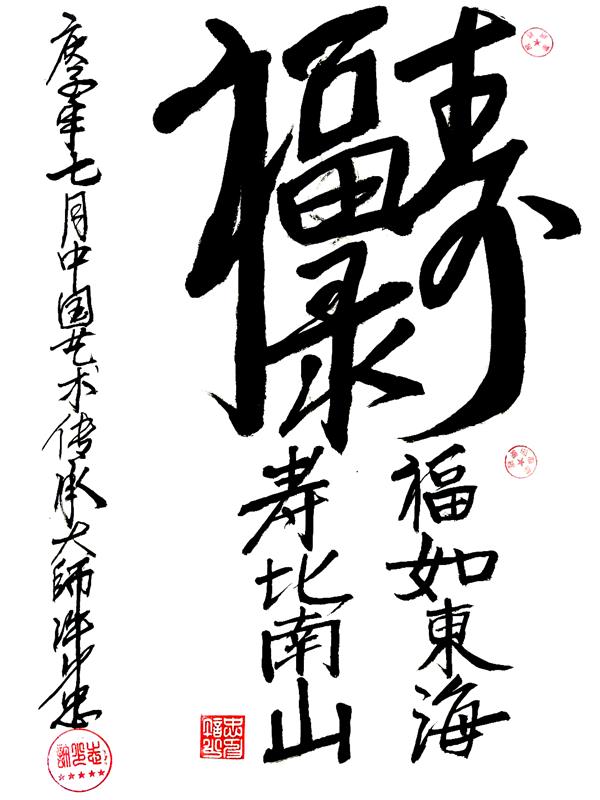 福禄寿
福如東海
寿比南山
庚子年七月中国艺术传承大師